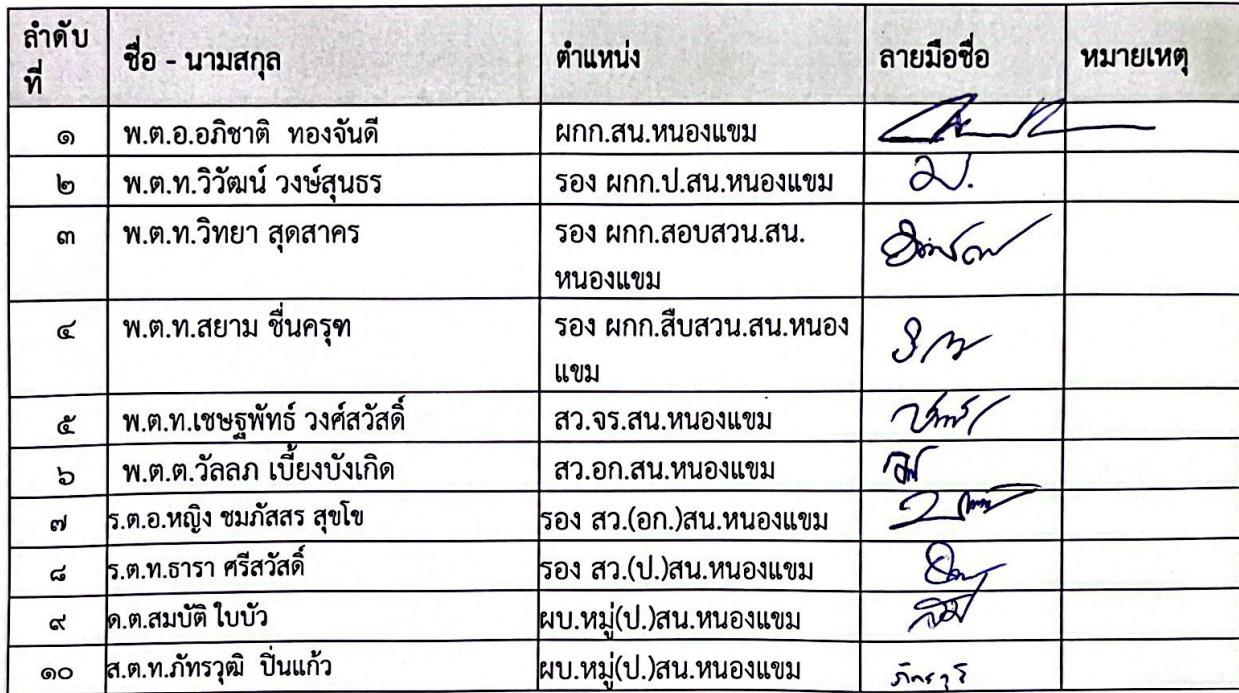 ลำดับที่ ชื่อ - นามสกุล ตำแหน่ง ลายมือชื่อ หมายเหตุ
๑ พ.ต.อ.อภิชาติ ทองจันดี ผกก.สน.หนองแขม
๒ พ.ต.ท.วิวัฒน์ วงษ์สุนธร รอง ผกก.ป.สน.หนองแขม
๓ พ.ต.ท.วิทยา สุดสาคร รอง ผกก.สอบสวน.สน.
หนองแขม
๔ พ.ต.ท.สยาม ชื่นครุฑ รอง ผกก.สืบสวน.สน.หนอง
แขม
๕ พ.ต.ท.เชษฐพัทธ์ วงศ์สวัสดิ์ สว.จร.สน.หนองแขม
๖ พ.ต.ต.วัลลภ เบี้ยงบังเกิด สว.อก.สน.หนองแขม
๗ ร.ต.อ.หญิง ชมภัสสร สุขโข รอง สว.(อก.)สน.หนองแขม
๘ ร.ต.ท.ธารา ศรีสวัสดิ์ รอง สว.(ป.)สน.หนองแขม
๙ ด.ต.สมบัติ ใบบัว ผบ.หมู่(ป.)สน.หนองแขม
๑๐ ส.ต.ท.ภัทรวุฒิ ปิ่นแก้ว ผบ.หมู่(ป.)สน.หนองแขม